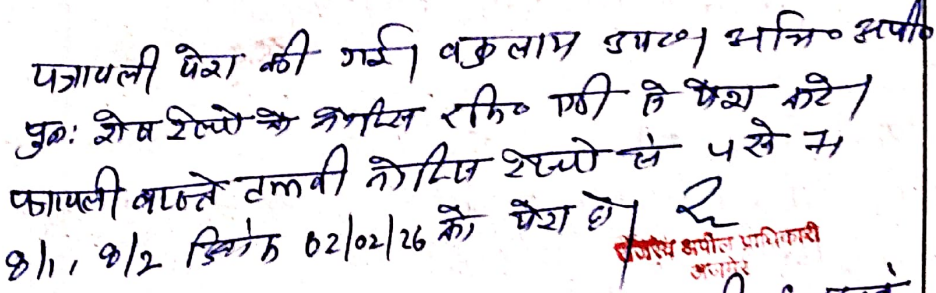 पत्रावली पेश की गई। वकुलाय उप०। अभि० अपी०
पुनः शेष रेस्पो के नोटिस रजि० ए०डी से पेश करे।
पत्रावली वास्ते तलबी नोटिस रेस्पो सं 4 से 7
8/1, 8/2 दिनांक 02/02/26 को पेश हो।
राजस्व अपील प्राधिकारी
अजमेर